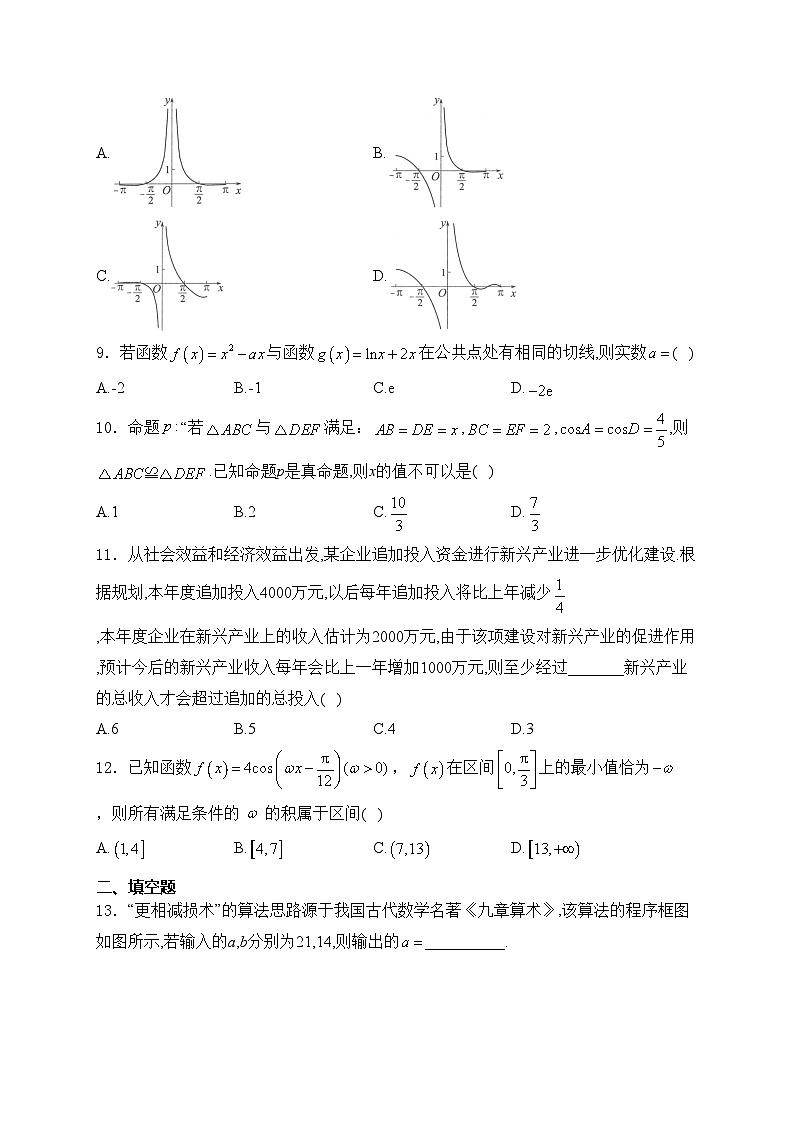 A. y 1 -π -π/2 O π/2 π x B. y 1 -π -π/2 O π/2 π x
C. y 1 -π -π/2 O π/2 π x D. y 1 -π -π/2 O π/2 π x
9. 若函数 f(x)=x²-ax与函数 g(x)=lnx+2x在公共点处有相同的切线,则实数 a=( )
A.-2 B.-1 C.e D.-2e
10. 命题 p:“若△ABC 与△DEF 满足: AB=DE=x,BC=EF=2,cosA=cosD=4/5,则
△ABC≌△DEF.已知命题p是真命题,则x的值不可以是( )
A.1 B.2 C.10/3 D.7/3
11. 从社会效益和经济效益出发,某企业追加投入资金进行新兴产业进一步优化建设.根
据规划,本年度追加投入4000万元,以后每年追加投入将比上年减少1/4
,本年度企业在新兴产业上的收入估计为2000万元,由于该项建设对新兴产业的促进作用
,预计今后的新兴产业收入每年会比上一年增加1000万元,则至少经过_______新兴产业
的总收入才会超过追加的总投入( )
A.6 B.5 C.4 D.3
12. 已知函数 f(x)=4cos(ωx-π/12)(ω>0), f(x)在区间[0,π/3]上的最小值恰为-ω
,则所有满足条件的 ω 的积属于区间( )
A.(1,4] B.[4,7] C.(7,13) D.[13,+∞)
二、填空题
13. “更相减损术”的算法思路源于我国古代数学名著《九章算术》,该算法的程序框图
如图所示,若输入的a,b分别为21,14,则输出的a=__________.